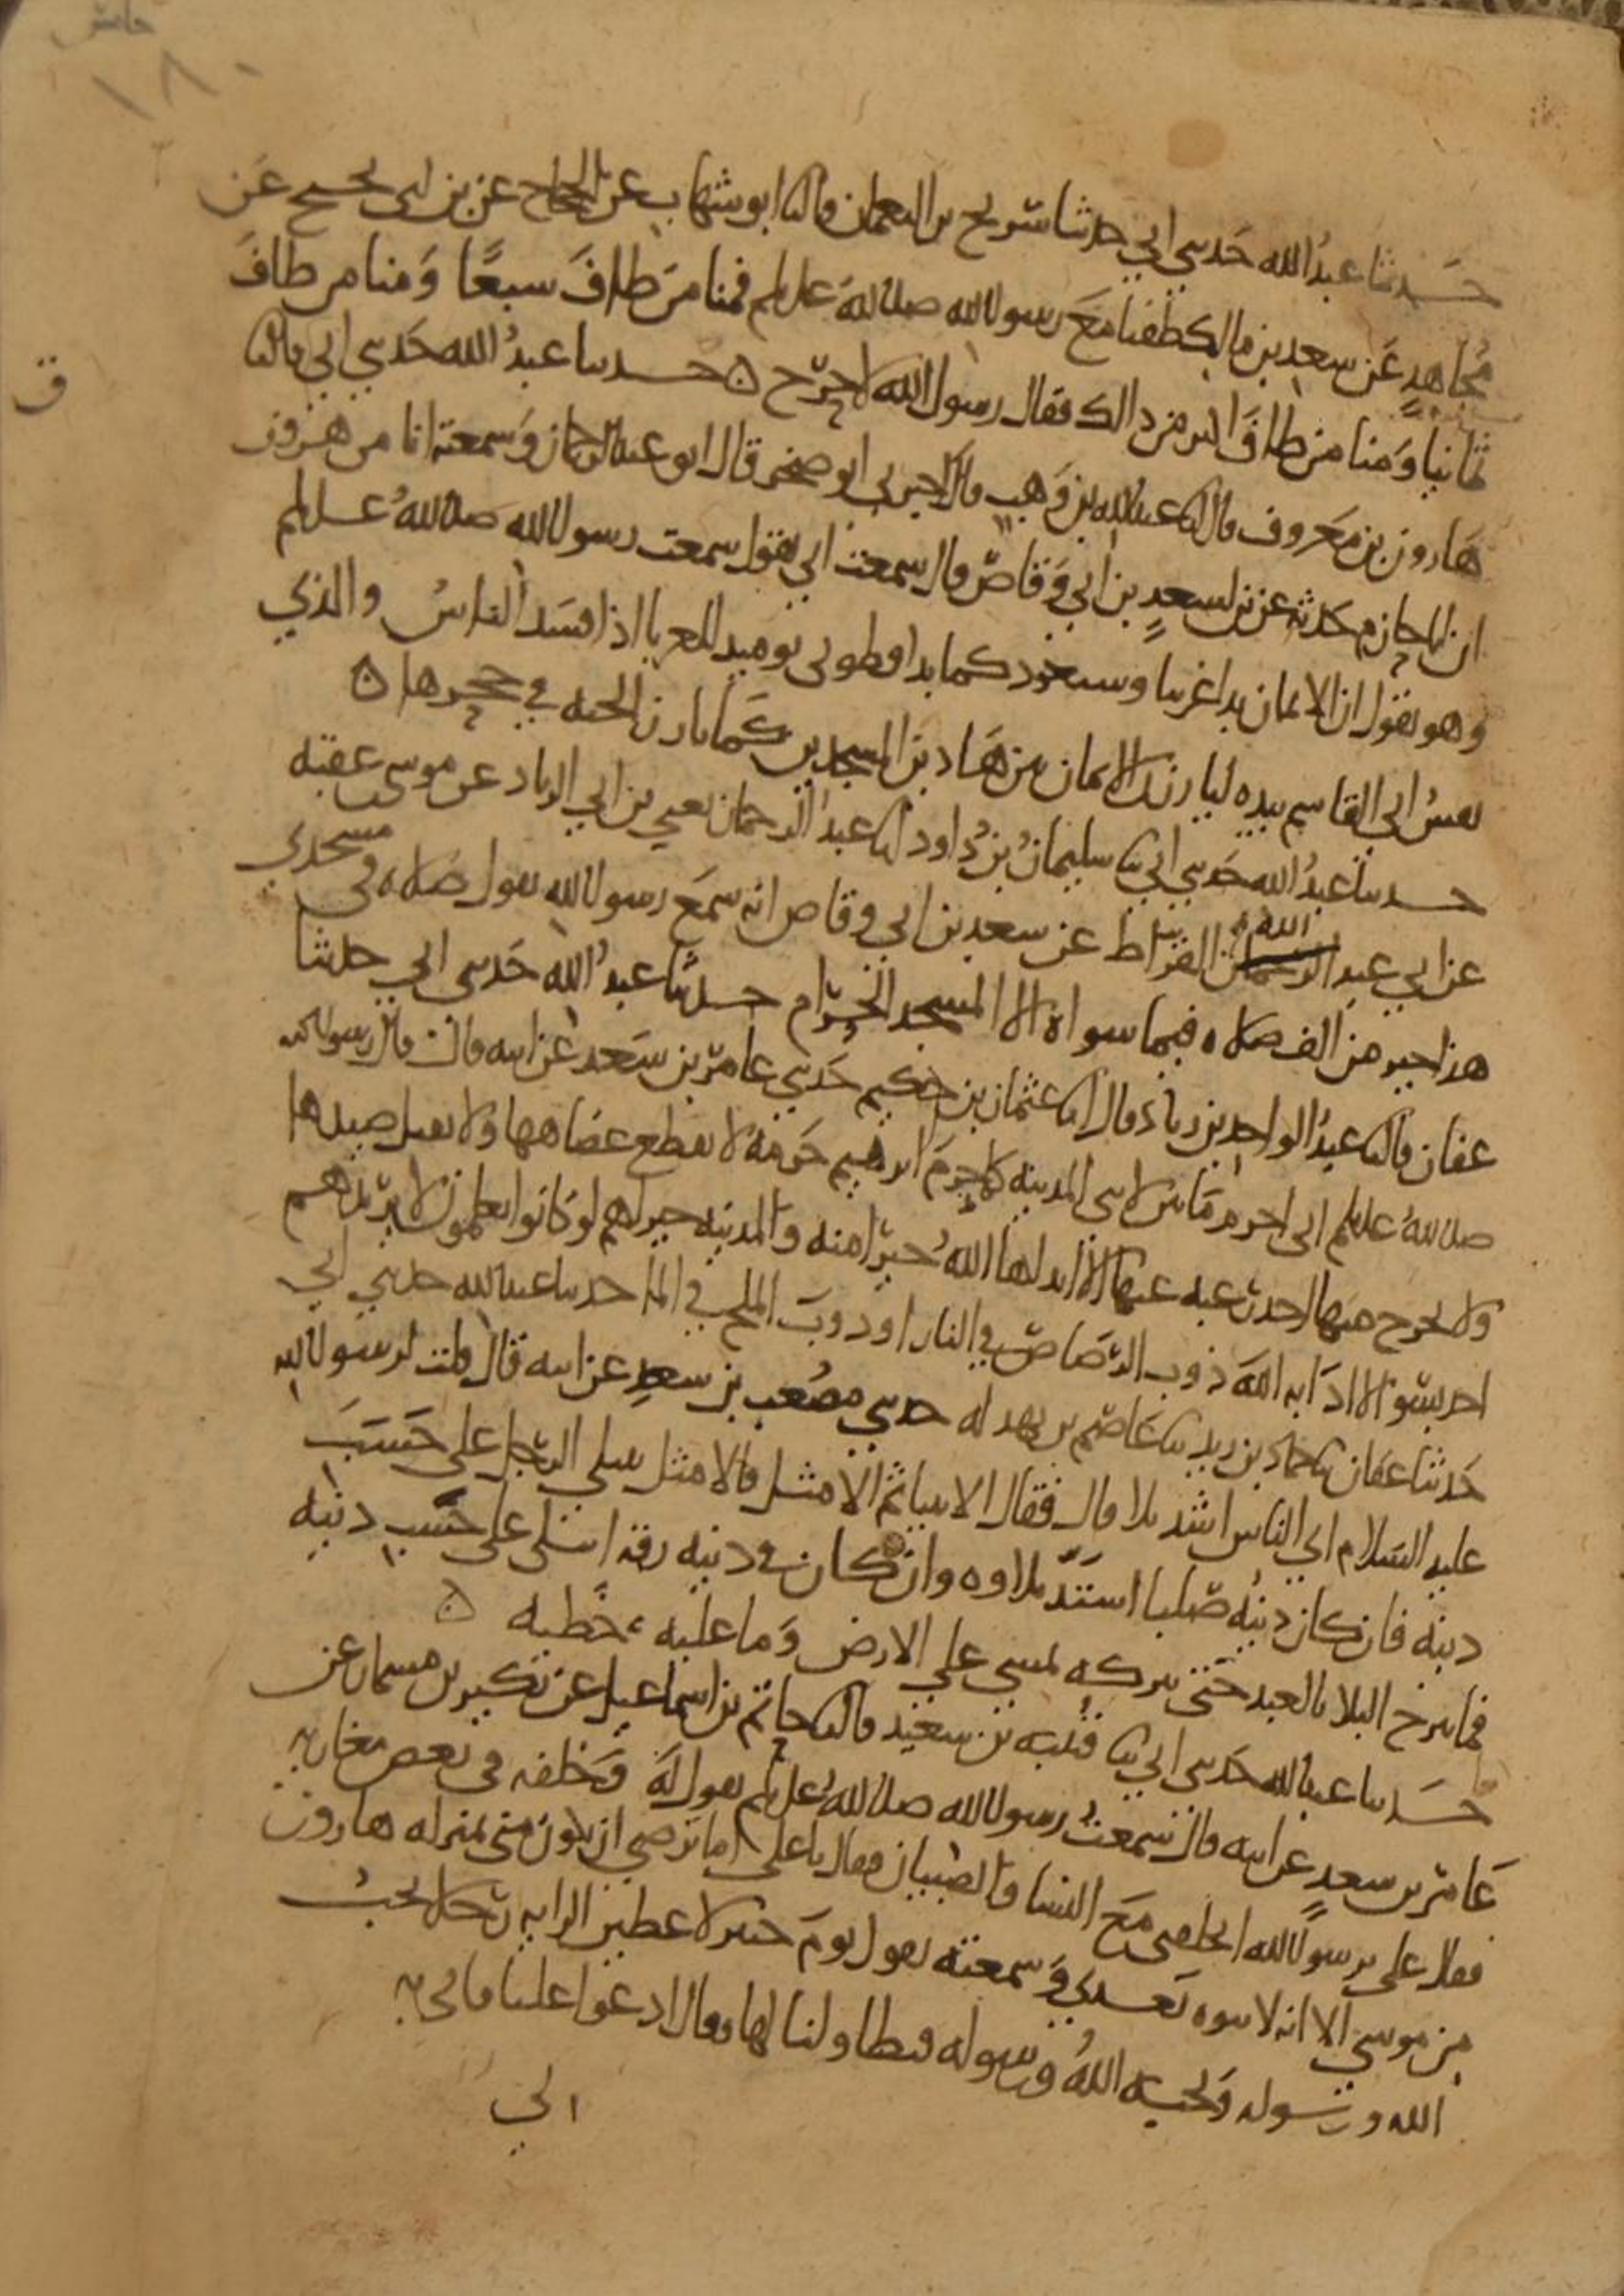 ١٨٠
حدثنا عبد الله حدثني ابي حدثنا سريج بن النعمان قال ثنا ابو شهاب عن الحجاج عن بن ابي نجيح عن
مجاهد عن سعد بن مالك طفنا مع رسول الله صلى الله عليه وسلم فمنا من طاف سبعا ومنا من طاف
ثمانيا ومنا من طاف اكثر من ذالك فقال رسول الله لا حرج ه حدثنا عبد الله حدثني ابي قال ثنا
ق
هارون بن معروف قال انا عبد الله بن وهب قال اخبرني ابو صخر قال ابو عبد الرحمان وسمعته انا من هرون
ان ابا حازم حدثه عن بن لسعد بن ابي وقاص قال سمعت ابي يقول سمعت رسول الله صلى الله عليه وسلم
وهو يقول ان الايمان بدا غريبا وسيعود كما بدا فطوبى يوميد للغربا اذا فسد الناس والذي
نفس ابي القاسم بيده ليارزن الايمان بين هاذين المسجدين كما تارز الحيه في جحرها ه
حدثنا عبد الله حدثني ابي ثنا سليمان بن داود انا عبد الرحمان يعني بن ابي الزناد عن موسى عقبه
عن ابي عبد الله القراظ عن سعد بن ابي وقاص انه سمع رسول الله يقول صلاه في مسجدي
هذا خير من الف صلاه فيما سواه الا المسجد الحرام حدثنا عبد الله حدثني ابي حدثنا
عفان قال ثنا عبد الواحد بن زياد قال ثنا عثمان بن حكيم حدثني عامر بن سعد عن ابيه قال قال رسول الله
صلى الله عليه وسلم اني احرم ما بين لابتي المدينه كما حرم ابرهيم حرمه لا يقطع عضاهها ولا يقتل صيدها
ولا يخرج منها احد رغبه عنها الا ابدلها الله خيرا منه والمدينه خير لهم لو كانوا يعلمون لا يريدهم
احد بسو الا اذابه الله ذوب الرصاص في النار او ذوب الملح في الما حدثنا عبد الله حدثني ابي
حدثنا عفان ثنا حماد بن زيد ثنا عاصم بن بهدله حدثني مصعب بن سعد عن ابيه قال قلت لرسول الله
عليه السلام اي الناس اشد بلا قال فقال الانبيا ثم الامثل فالامثل يبتلى الرجل على حسب
دينه فان كان دينه صلبا اشتد بلاوه وان كان في دينه رقه ابتلي على حسب دينه
فما يبرح البلا بالعبد حتى يتركه يمشي على الارض وما عليه خطيه ه
حدثنا عبد الله حدثني ابي ثنا قتيبه بن سعيد قال ثنا حاتم بن اسماعيل عن بكير بن مسمار عن
عامر بن سعد عن ابيه قال سمعت رسول الله صلى الله عليه وسلم يقول له وخلفه في بعض مغازيه
فقال علي يرسول الله اتخلفني مع النسا والصبيان فقال يا علي اما ترضى ان تكون مني بمنزله هارون
من موسى الا انه لا نبوه بعدي وسمعته يقول يوم خيبر لاعطين الرايه رجلا يحب
الله ورسوله ويحبه الله ورسوله فتطاولنا لها فقال ادعوا عليا فاتي به
ابي